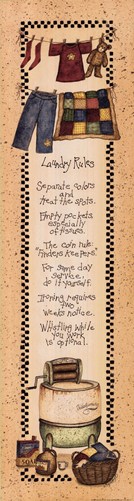 Laundry Rules
Separate colors
and
treat the spots.
Empty pockets
especially
of tissues.
"The coin rule:
"Finders Keepers".
For same day
service,
do it yourself.
Ironing requires
two
weeks notice.
Whistling while
you work
is optional.
SOAP